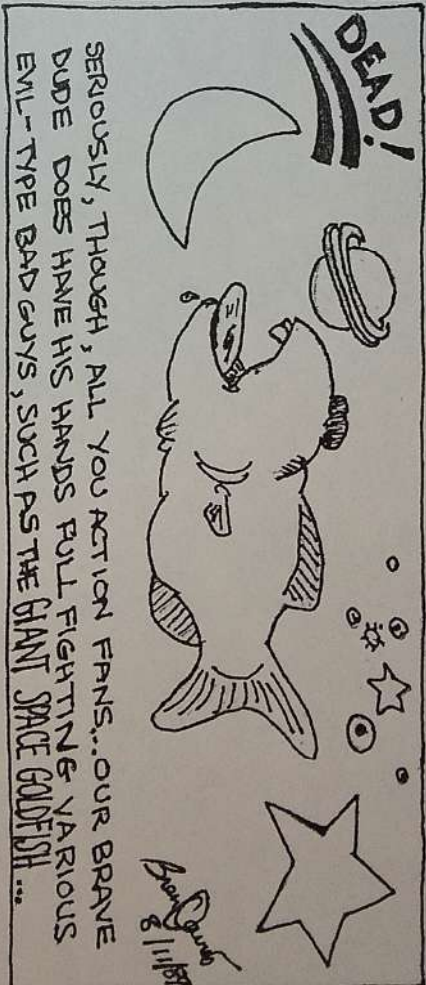 DEAD!
SERIOUSLY, THOUGH, ALL YOU ACTION FANS...OUR BRAVE
DUDE DOES HAVE HIS HANDS FULL FIGHTING VARIOUS
EVIL-TYPE BAD GUYS, SUCH AS THE GIANT SPACE GOLDFISH...
8/11/89